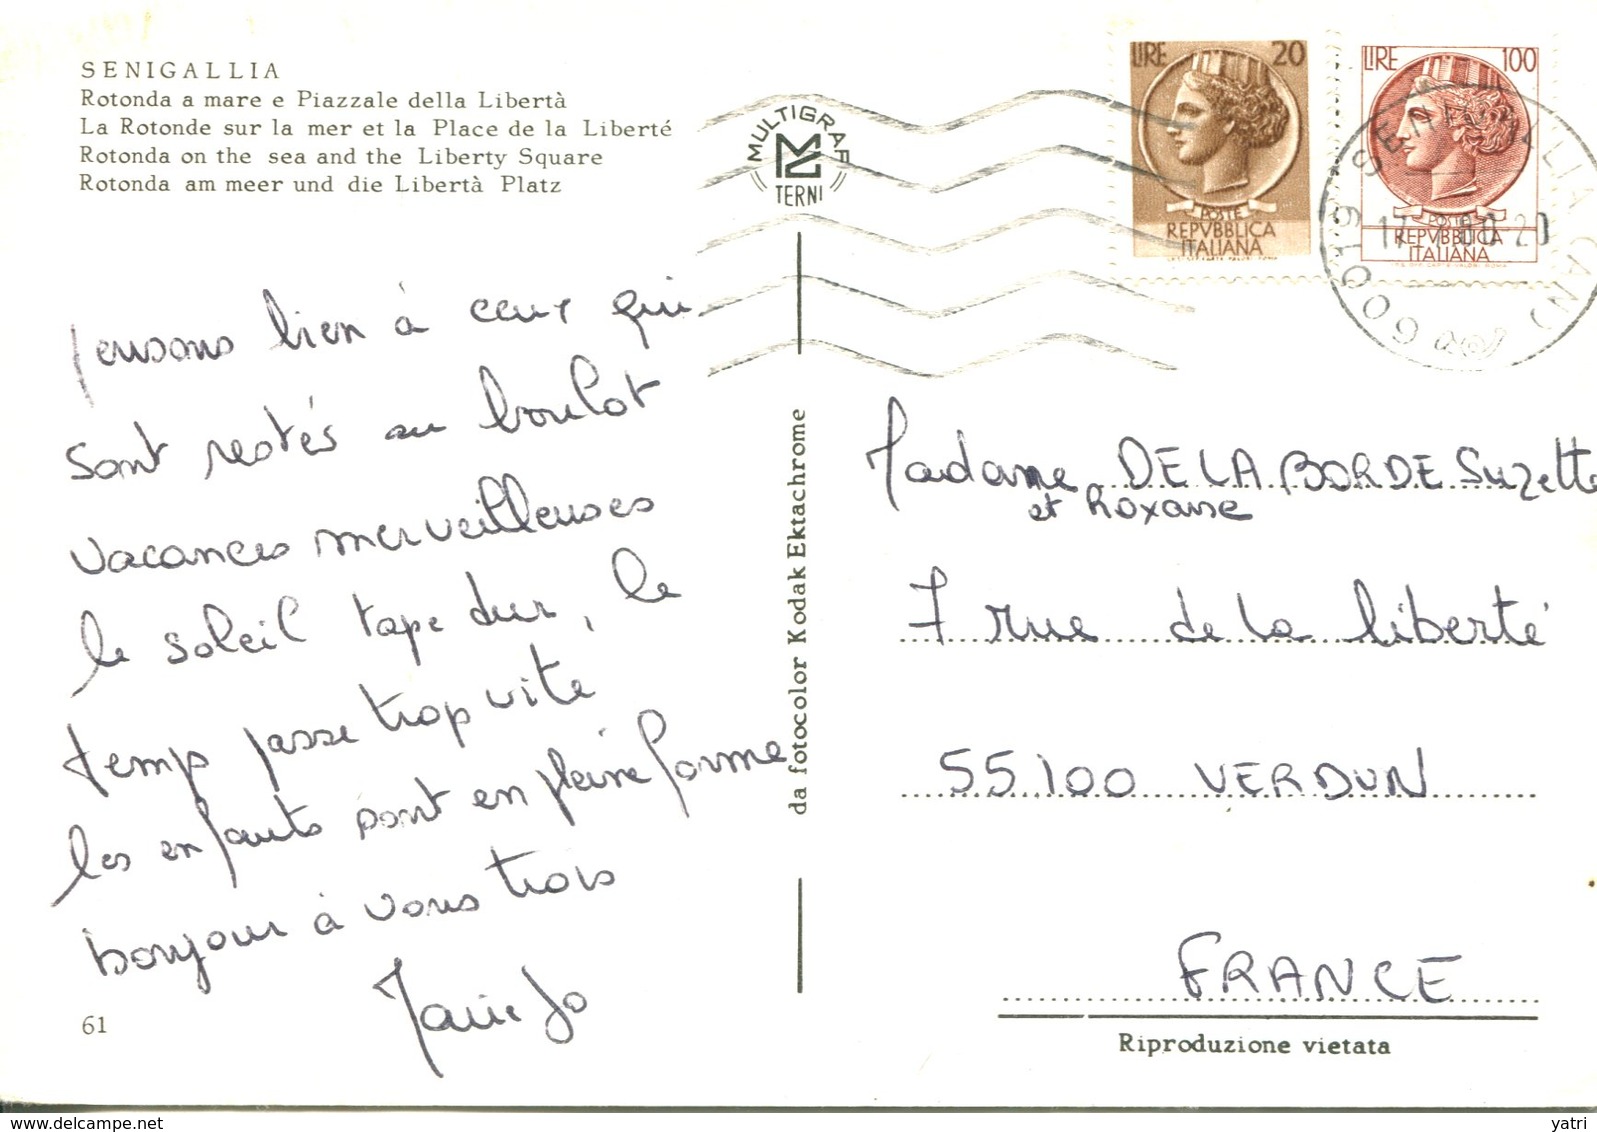 SENIGALLIA
Rotonda a mare e Piazzale della Libertà
La Rotonde sur la mer et la Place de la Liberté
Rotonda on the sea and the Liberty Square
Rotonda am meer und die Libertà Platz
MULTIGRAF
TERNI
LIRE 20
POSTE
REPVBBLICA
ITALIANA
LIRE 100
POSTE
REPVBBLICA
ITALIANA
60019 SENIGALLIA (AN)
80 20
pensons bien à ceux qui
sont restés au boulot
vacances merveilleuses
le soleil tape dur, le
temp passe trop vite
les enfants sont en pleine forme
bonjour à vous trois
Marie Jo
61
da fotocolor Kodak Ektachrome
Madame DELABORDE Suzette
et Roxane
7 rue de la liberté
55100 VERDUN
FRANCE
Riproduzione vietata
yatri